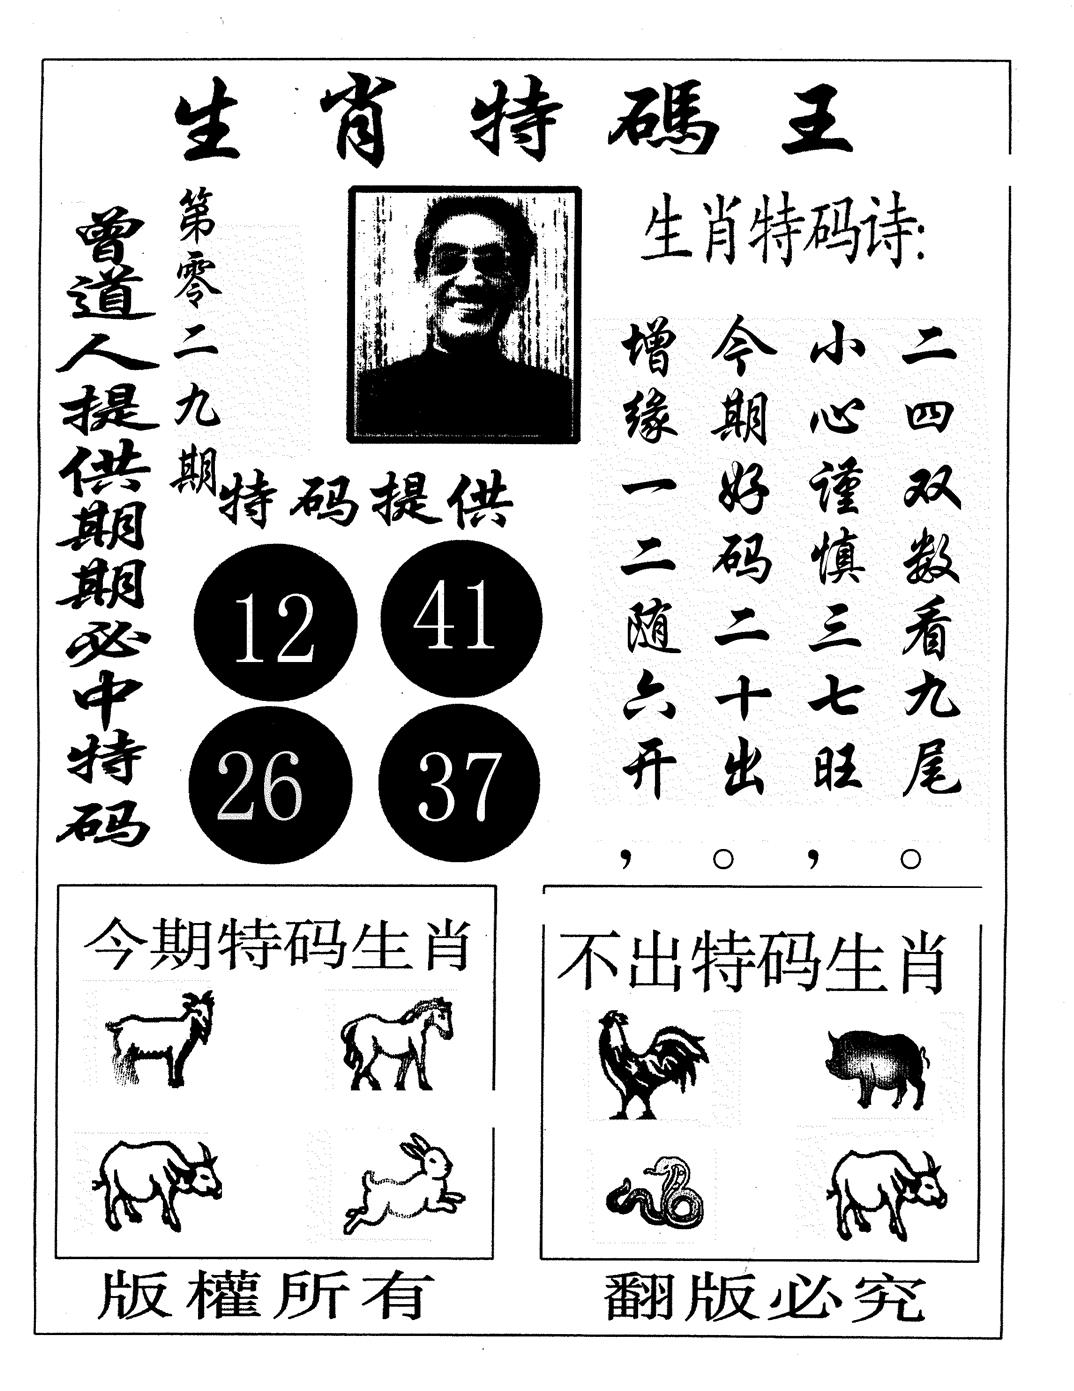 生肖特碼王
曾道人提供期期必中特码
第零二九期
特码提供
12
41
26
37
生肖特码诗:
二四双数看九尾。
小心谨慎三七旺，
今期好码二十出。
增缘一二随六开，
今期特码生肖
不出特码生肖
版權所有
翻版必究